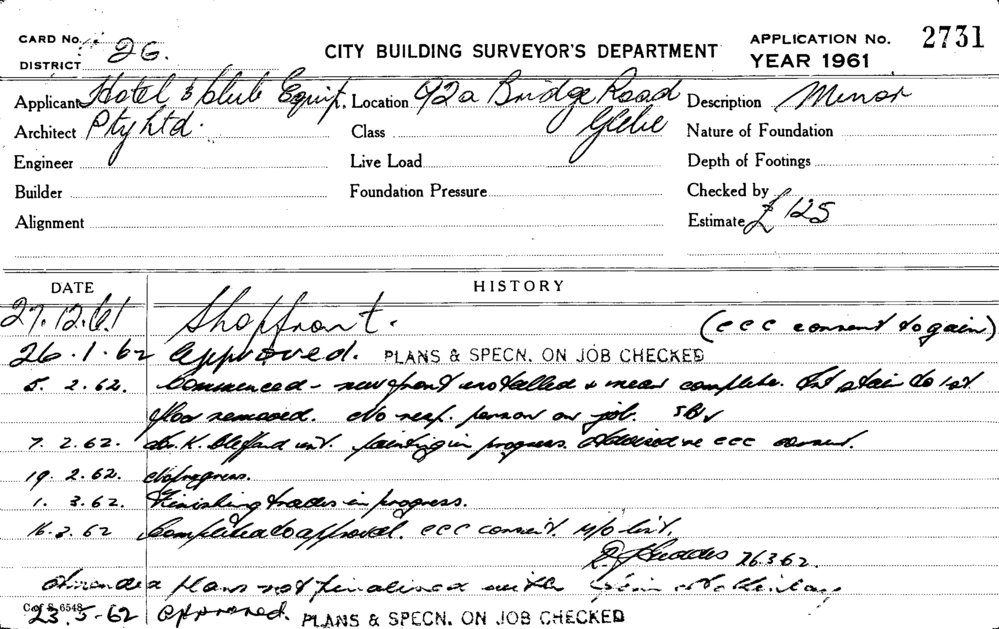 CARD No. 26. CITY BUILDING SURVEYOR'S DEPARTMENT APPLICATION No. 2731
DISTRICT YEAR 1961
Applicant Hotel & Club Equip. Location 92a Bridge Road Description Minor
Architect Pty Ltd. Class Glebe Nature of Foundation
Engineer Live Load Depth of Footings
Builder Foundation Pressure Checked by
Alignment Estimate £125
DATE HISTORY
27.12.61 Shopfront. (CCC consent to gain)
26.1.62 Approved. PLANS & SPECN. ON JOB CHECKED
5.2.62. Commenced - new front installed & near complete. Int stair to 1st
floor removed. No resp. person on job.
7.2.62. Mr. K. int. painting in progress. Advised re CCC consent.
19.2.62. No progress.
1.3.62. Finishing trades in progress.
16.3.62 Completed to approval. CCC consent. m/o list.
26.3.62.
Amended plans not finalised with
C. of S. 6548
23.5.62 Approved. PLANS & SPECN. ON JOB CHECKED